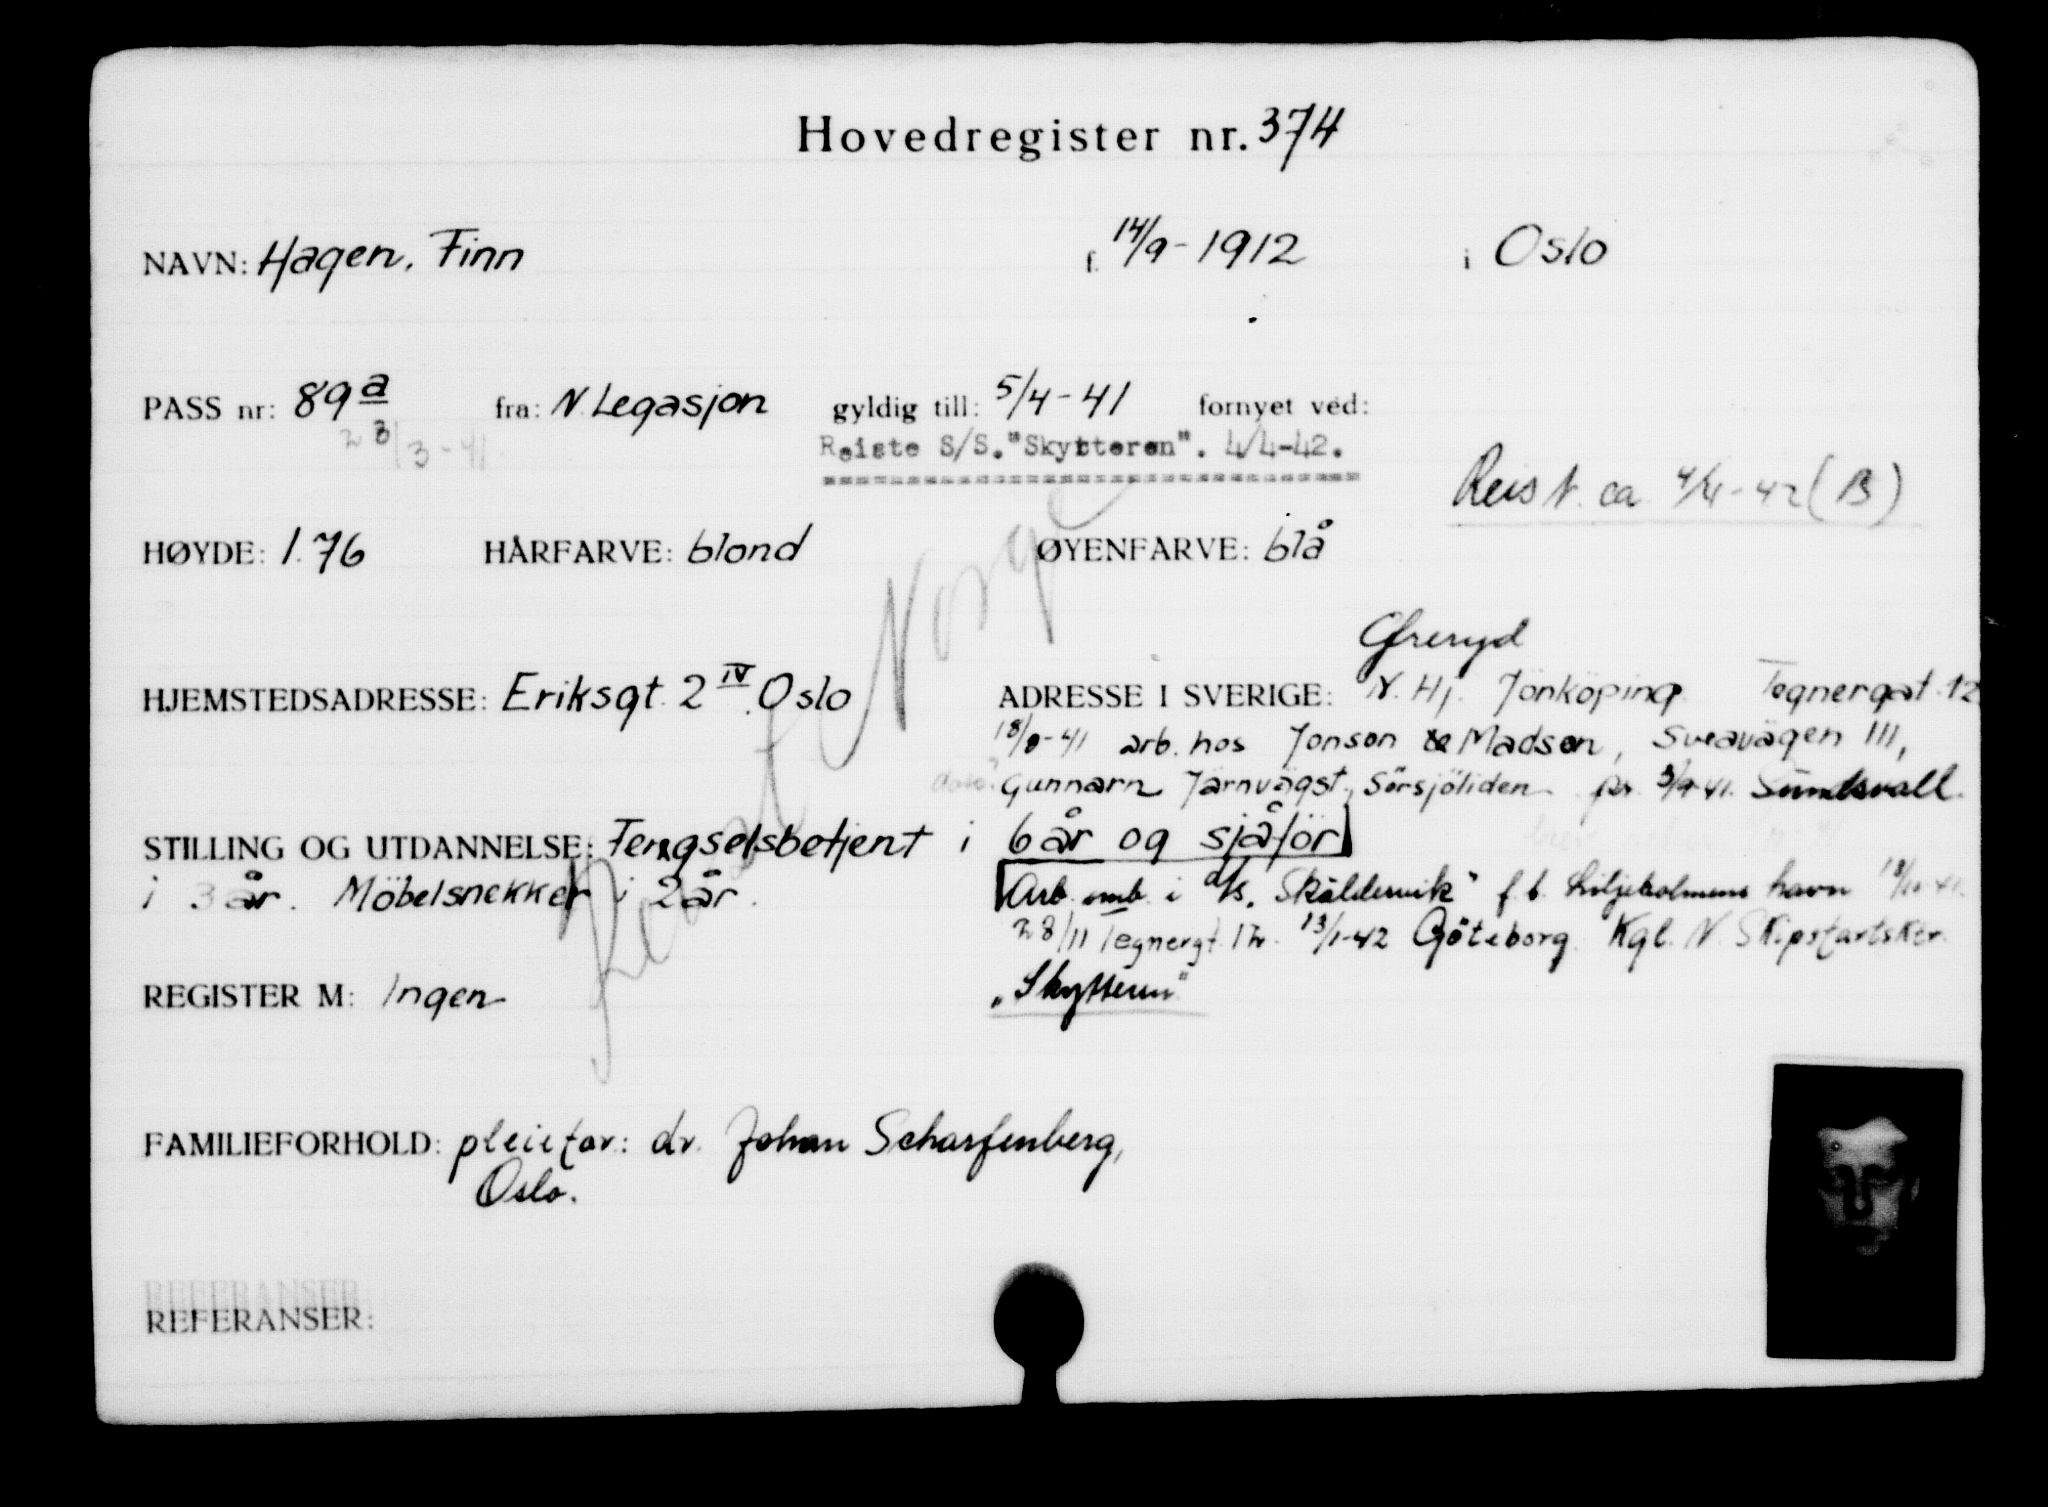 Hovedregister nr. 374
NAVN: Hagen, Finn f. 14/9-1912 i Oslo
PASS nr: 89 a fra: N. Legasjon gyldig till: 5/4-41 fornyet ved:
28/3-41
Reiste S/S. "Skytteren". 4/4-42.
Reist ca 4/4-42 (B)
HØYDE: 1.76 HÅRFARVE: blond ØYENFARVE: blå
Reist Norge
Öreryd
HJEMSTEDSADRESSE: Eriksgt. 2 IV. Oslo ADRESSE I SVERIGE: N. Hj. Jönköping Tegnergat. 12
18/8-41 arb. hos Jonson & Madsen, Sveavägen 111,
Gunnarn Järnvägst., Sörsjöliden pr. 3/9-41. Sundsvall.
STILLING OG UTDANNELSE: Fengselsbetjent i 6 år og sjåför
i 3 år. Möbelsnekker i 2 år.
Arb. omb. i d/s. "Skäldervik" f.t. Liljeholmens havn 18/11-41.
28/11 Tegnergt. 12. 13/1-42 Göteborg Kgl. N. Skipsfartsktr.
"Skytteren"
REGISTER M: Ingen
FAMILIEFORHOLD: pleiefar: dr. Johan Scharfenberg,
Oslo.
REFERANSER: